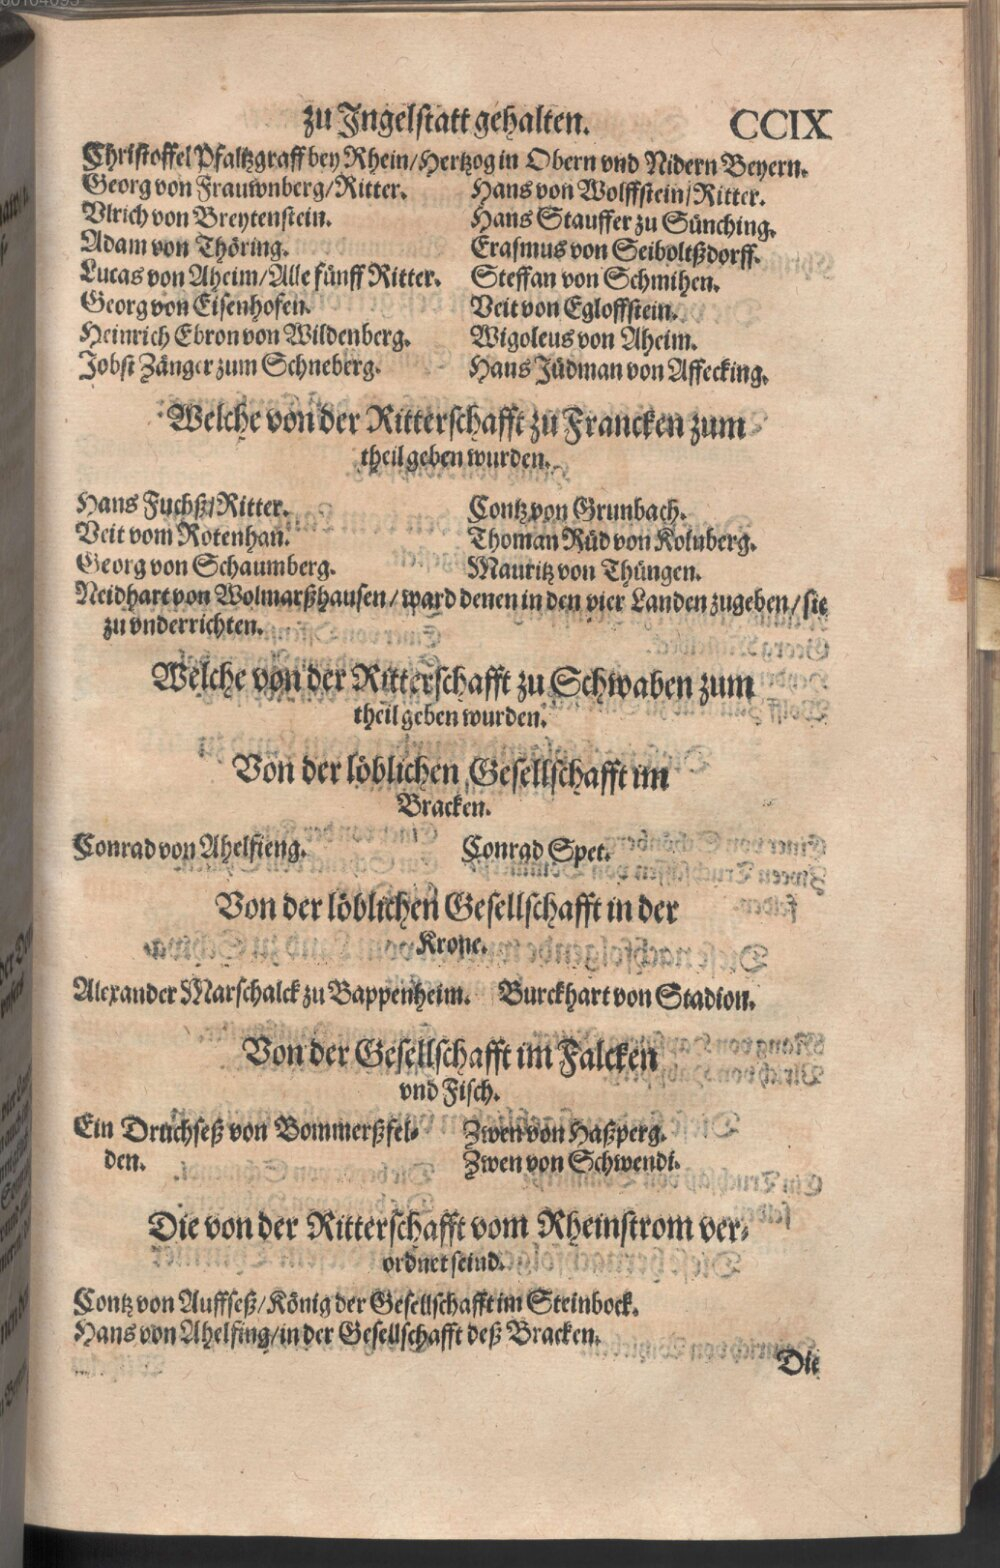 zu Jngelstatt gehalten. CCIX
Christoffel Pfaltzgraff bey Rhein/Hertzog in Obern vnd Nidern Beyern.
Georg von Frauwnberg/Ritter. Hans von Wolffstein/Ritter.
Vlrich von Breytenstein. Hans Stauffer zu Sünching.
Adam von Thöring. Erasmus von Seiboltßdorff.
Lucas von Aheim/Alle fünff Ritter. Steffan von Schmihen.
Georg von Eisenhofen. Veit von Egloffstein.
Heinrich Ebron von Wildenberg. Wigoleus von Aheim.
Jobst Zänger zum Schneberg. Hans Jüdman von Affecking.
Welche von der Ritterschafft zu Francken zum
theil geben wurden.
Hans Fuchß/Ritter. Contz von Grunbach.
Veit vom Rotenhan. Thoman Rüd von Kolnberg.
Georg von Schaumberg. Mauritz von Thüngen.
Neidhart von Wolmarßhausen/ward denen in den vier Landen zugeben/sie
zu vnderrichten.
Welche von der Ritterschafft zu Schwaben zum
theil geben wurden.
Von der löblichen Gesellschafft im
Bracken.
Conrad von Ahelfieng. Conrad Spet.
Von der löblichen Gesellschafft in der
Krone.
Alexander Marschalck zu Bappenheim. Burckhart von Stadion.
Von der Gesellschafft im Falcken
vnd Fisch.
Ein Druchseß von Bommerßfel- Zwen von Haßperg.
den. Zwen von Schwendi.
Die von der Ritterschafft vom Rheinstrom ver-
ordnet seind.
Contz von Auffseß/König der Gesellschafft im Steinbock.
Hans von Ahelfing/in der Gesellschafft deß Bracken.
Die